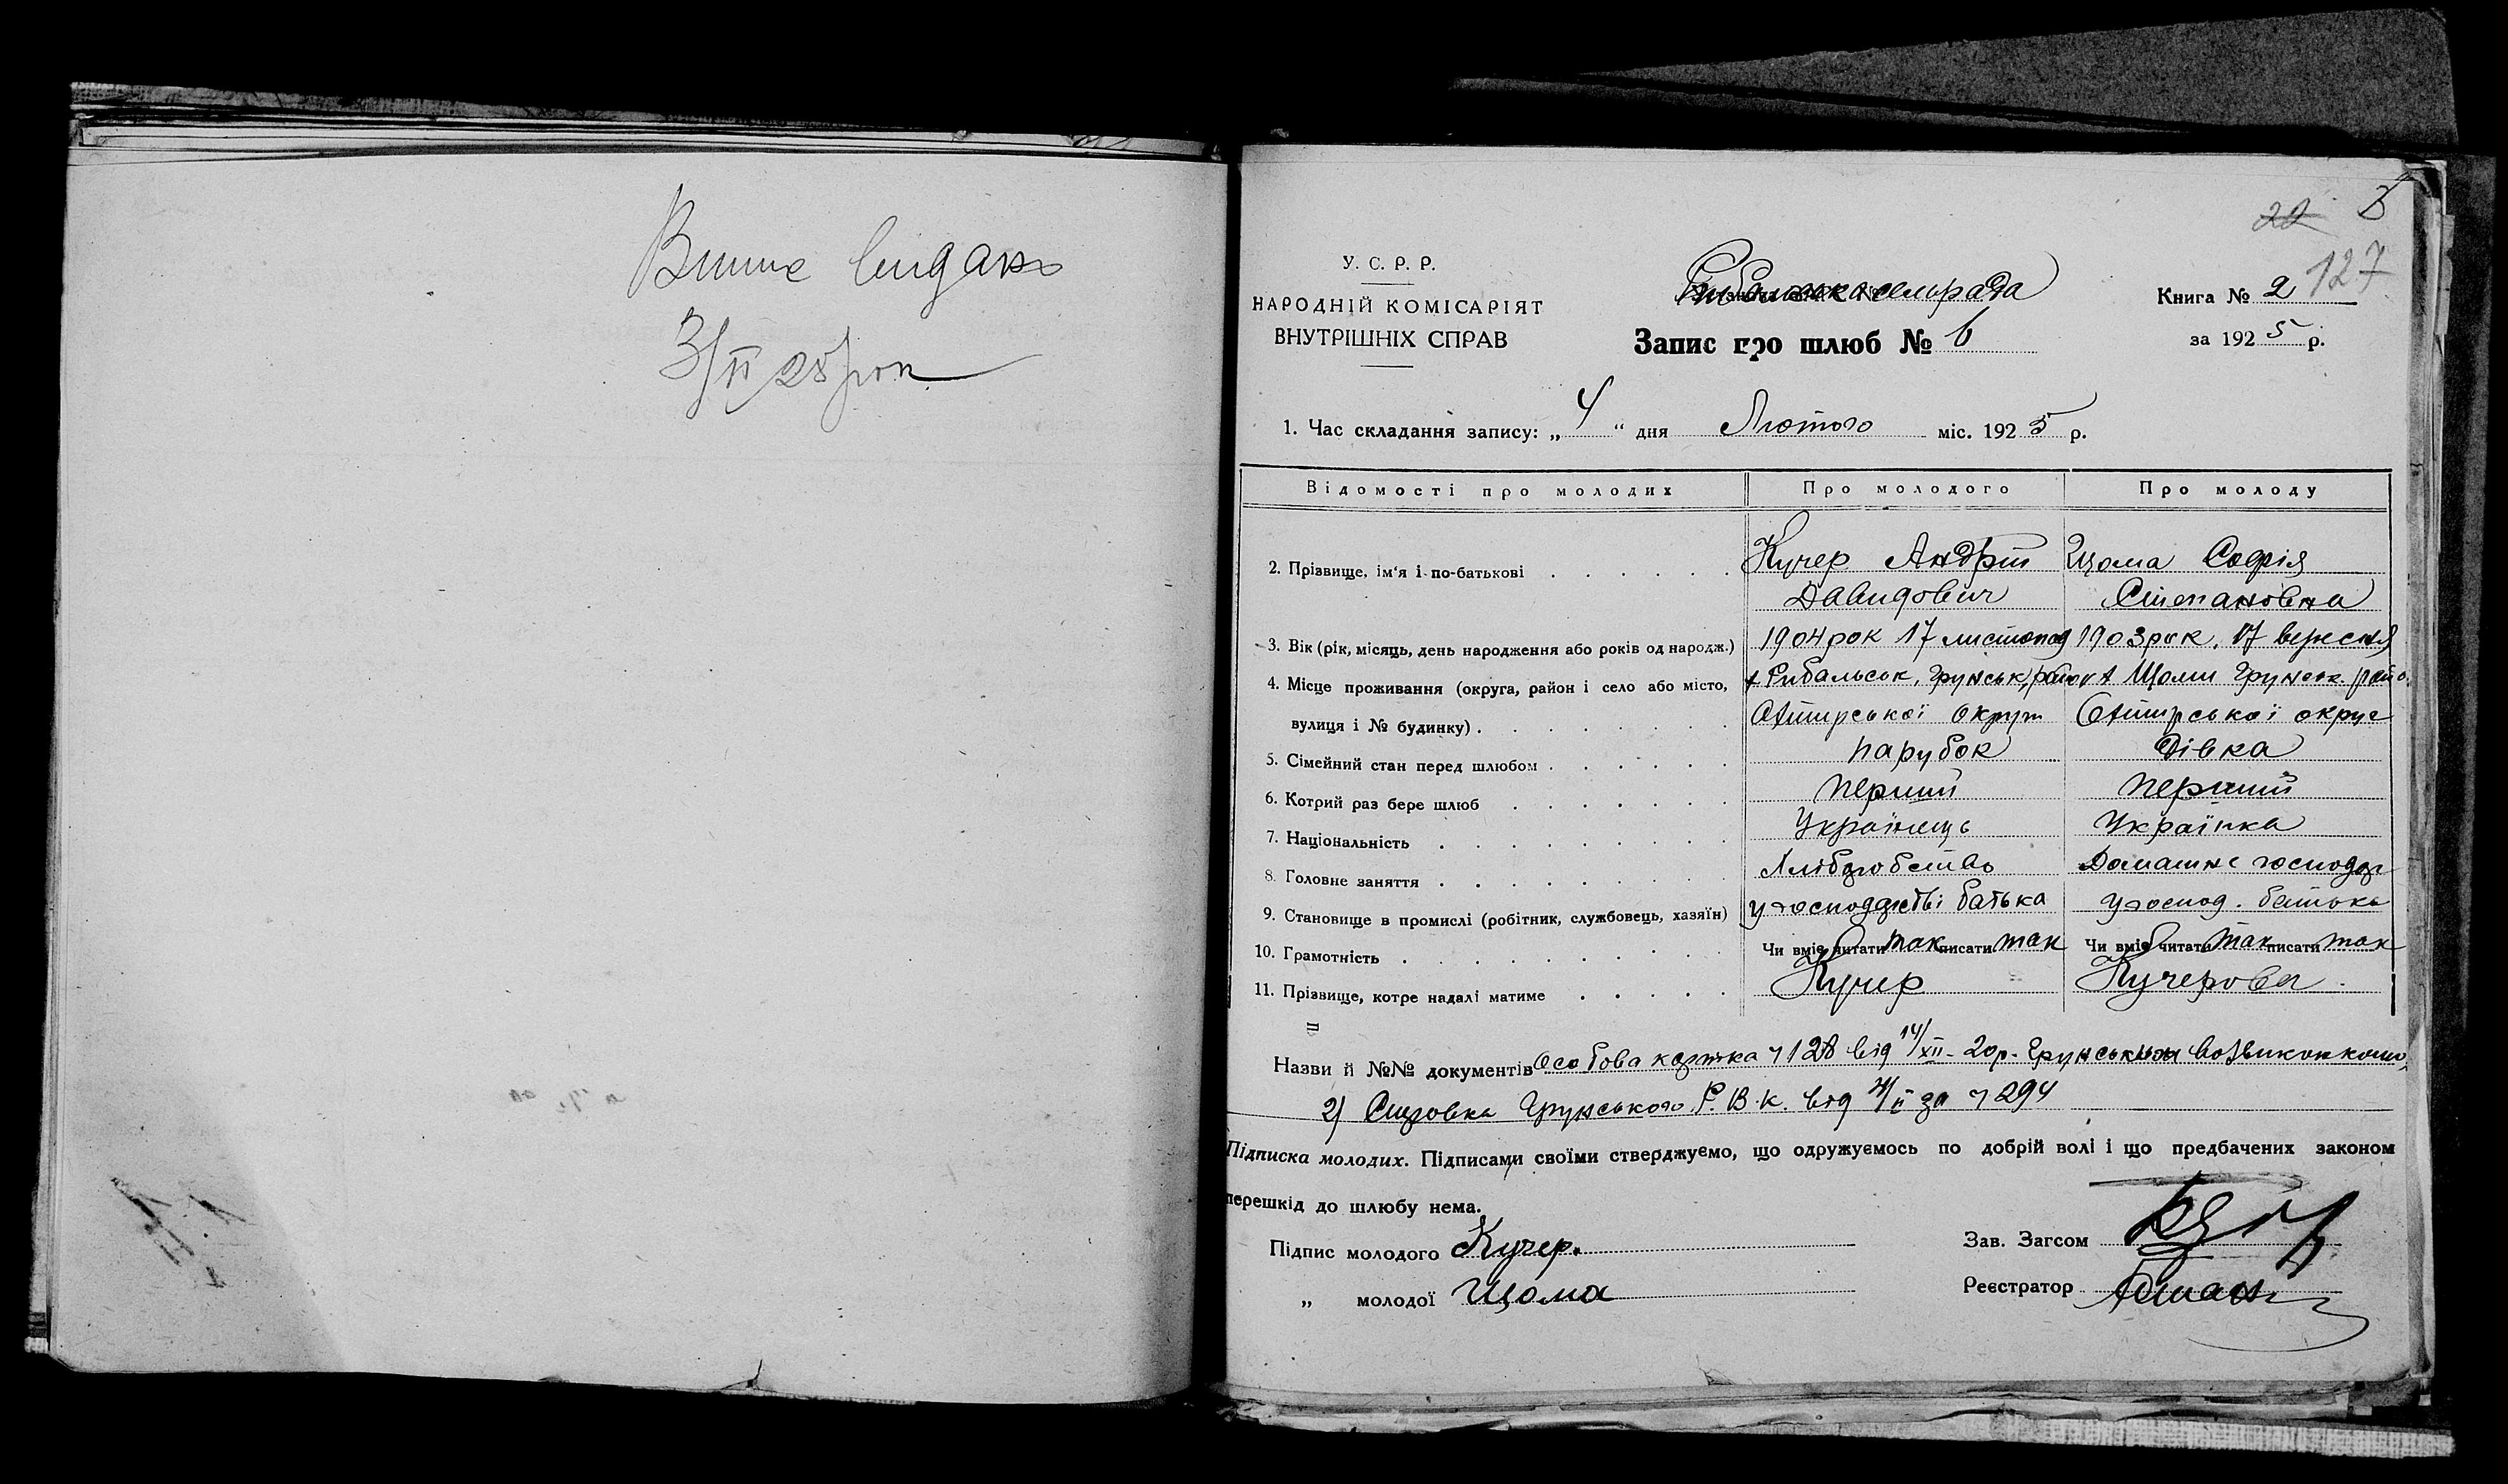 Випис видано
3/II 25 рок
20
127
У. С. Р. Р.
НАРОДНІЙ КОМІСАРІЯТ
ВНУТРІШНІХ СПРАВ
сельрада
Запис про шлюб № 6
Книга № 2
за 1925 р.
1. Час складання запису: „4“ дня Лютого міс. 1925 р.
Відомості про молодих Про молодого Про молоду
2. Прізвище, ім'я і по-батькові Кучер Андрій Щома Софія
Давидович Степановна
3. Вік (рік, місяць, день народження або років од народж.) 1904 рок 17 листопад 1903 рок. 17 вересня
4. Місце проживання (округа, район і село або місто, х Рибальськ, Грунськ, району х Щоми Грунськ. райо.
вулиця і № будинку) Охтирської округи Охтирської округ
5. Сімейний стан перед шлюбом парубок Дівка
6. Котрий раз бере шлюб перший перший
7. Національність Українець Українка
8. Головне заняття Хлібробство Домашнє господар
9. Становище в промислі (робітник, службовець, хазяїн) у господарстві батька у господ. батька
10. Грамотність Чи вміє читати так писати так Чи вміє читати так писати так
11. Прізвище, котре надалі матиме Кучер Кучерова
Назви й №№ документів Особова картка ч 128 від 14/XII - 20р. Грунського
2) Грунського Р. В. К. від 4/II за ч 294
Підписка молодих. Підписами своїми стверджуємо, що одружуємось по добрій волі і що предбачених законом
перешкід до шлюбу нема.
Підпис молодого Кучер.
Зав. Загсом
„ молодої Щома
Реєстратор